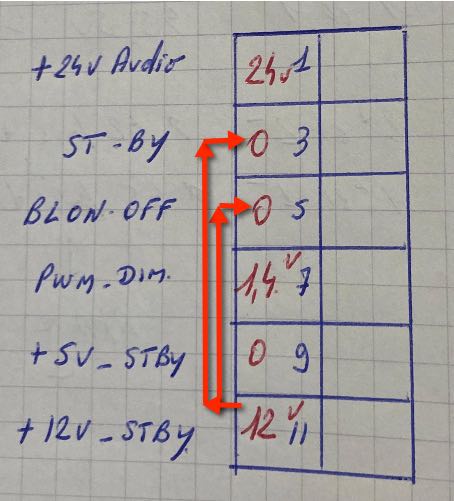 +24v Audio 24v 1
ST-BY 0 3
BLON-OFF 0 5
PWM-DIM. 1,4v 7
+5V_STBY 0 9
+12V_STBY 12v 11